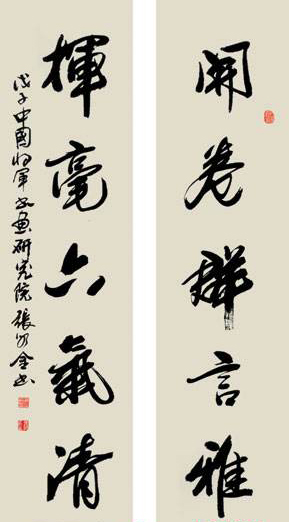 開卷群言雅
揮毫六氣清
戊子中國將軍書畫研究院張金書